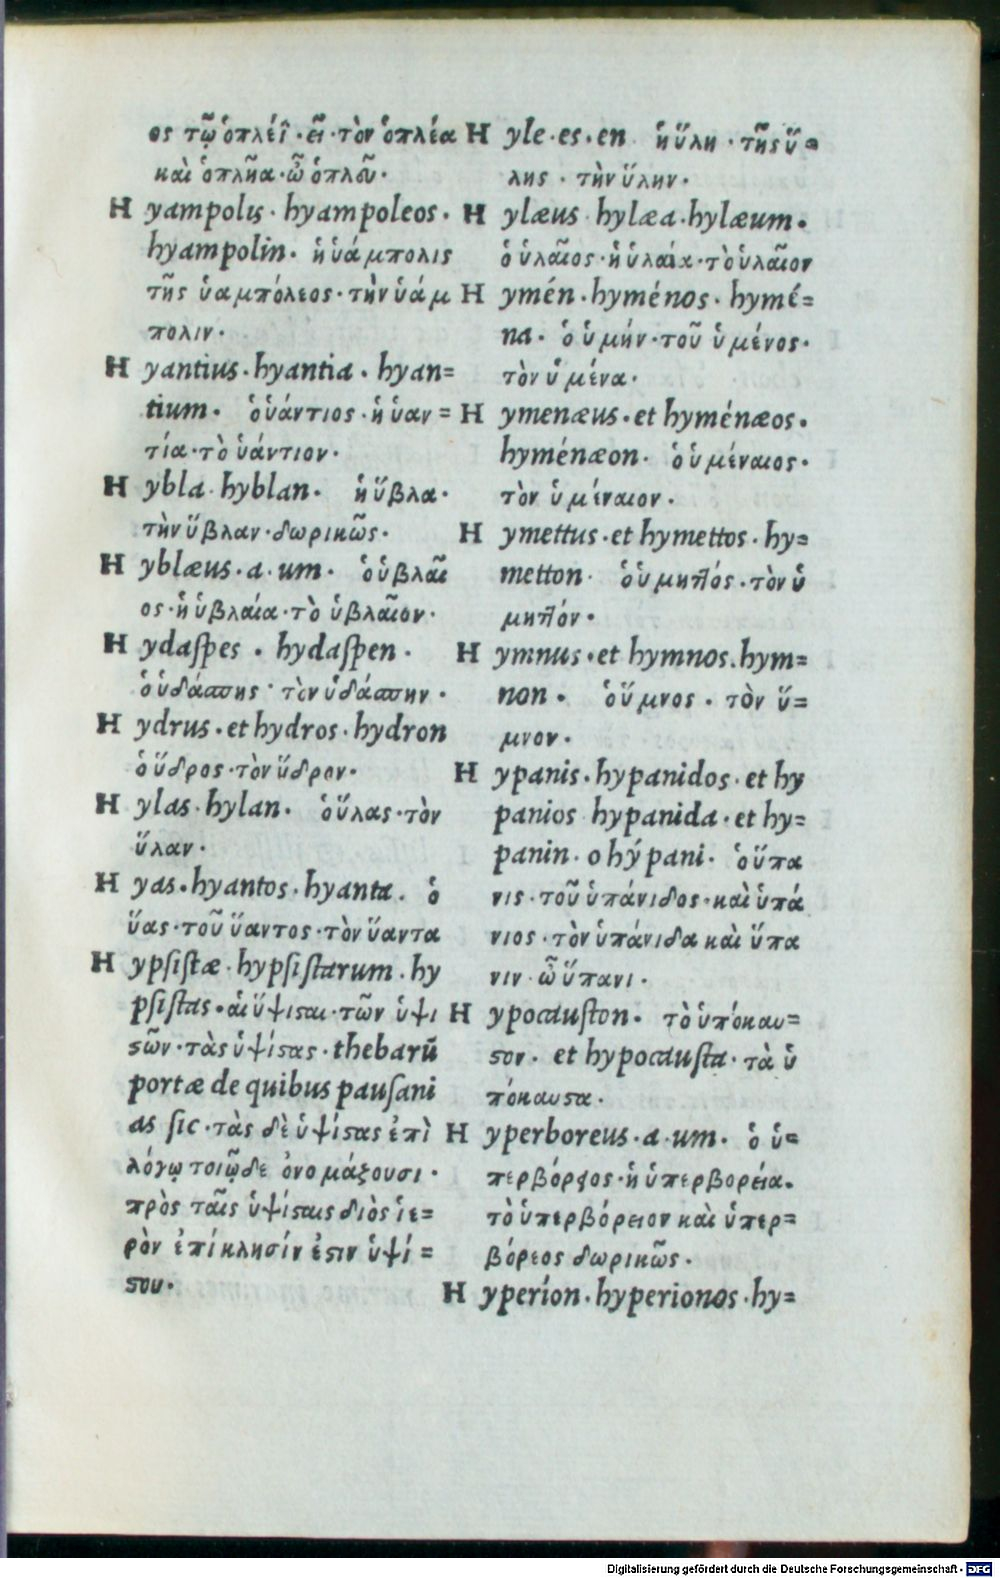 ος τῷ ὁπλέϊ · εῖ · τὸν ὁπλέα
καὶ ὁπλῆα · ὦ ὁπλοῦ ·
H yampolis · hyampoleos ·
hyampolin · ἡ ὑάμπολις
τῆς ὑαμπόλεος · τὴν ὑάμ
πολιν ·
H yantius · hyantia · hyan=
tium · ὁ ὑάντιος · ἡ ὑαν=
τία · τὸ ὑάντιον ·
H ybla · hyblan · ἡ ὕβλα ·
τὴν ὕβλαν · δωρικῶς ·
H yblæus · a · um · ὁ ὑβλαῖ
ος · ἡ ὑβλαία · τὸ ὑβλαῖον ·
H ydaſpes · hydaſpen ·
ὁ ὑδάσπης · τὸν ὑδάσπην ·
H ydrus · et hydros · hydron
ὁ ὕδρος · τὸν ὕδρον ·
H ylas · hylan · ὁ ὕλας · τὸν
ὕλαν ·
H yas · hyantos · hyanta · ὁ
ὕας · τοῦ ὕαντος · τὸν ὕαντα
H ypſiſtæ · hypſiſtarum · hy
pſiſtas · αἱ ὕψιϛαι · τῶν ὑψι
ϛῶν · τὰς ὑψίϛας · thebarũ
portæ de quibus pauſani
as ſic · τὰς δὲ ὑψίϛας ἐπὶ
λόγῳ τοιῷδε ὀνομάζουσι ·
πρὸς ταῖς ὑψίϛαις διὸς ἱε=
ρὸν ἐπίκλησίν ἐϛιν ὑψί=
ϛου ·
H yle · es · en ἡ ὕλη · τῆς ὕ=
λης · τὴν ὕλην ·
H ylæus · hylæa · hylæum ·
ὁ ὑλαῖος · ἡ ὑλαία · τὸ ὑλαῖον
H ymén · hyménos · hymé=
na · ὁ ὑμήν · τοῦ ὑμένος ·
τὸν ὑμένα ·
H ymenæus · et hyménæos ·
hyménæon · ὁ ὑμέναιος ·
τὸν ὑμέναιον ·
H ymettus · et hymettos · hy=
metton · ὁ ὑμηττός · τὸν ὑ
μηττόν ·
H ymnus · et hymnos · hym=
non · ὁ ὕμνος · τὸν ὕ=
μνον ·
H ypanis · hypanidos · et hy
panios hypanida · et hy=
panin · o hýpani · ὁ ὕπα
νις · τοῦ ὑπάνιδος · καὶ ὑπά
νιος · τὸν ὑπάνιδα καὶ ὕπα
νιν · ὦ ὕπανι ·
H ypocauſton · τὸ ὑπόκαυ=
ϛον · et hypocauſta · τὰ ὑ
πόκαυϛα ·
H yperboreus · a · um · ὁ ὑ=
περβόρεος · ἡ ὑπερβορεία ·
τὸ ὑπερβόρειον καὶ ὑπερ=
βόρεος δωρικῶς ·
H yperíon · hyperionos · hy=
Digitalisierung gefördert durch die Deutsche Forschungsgemeinschaft - DFG